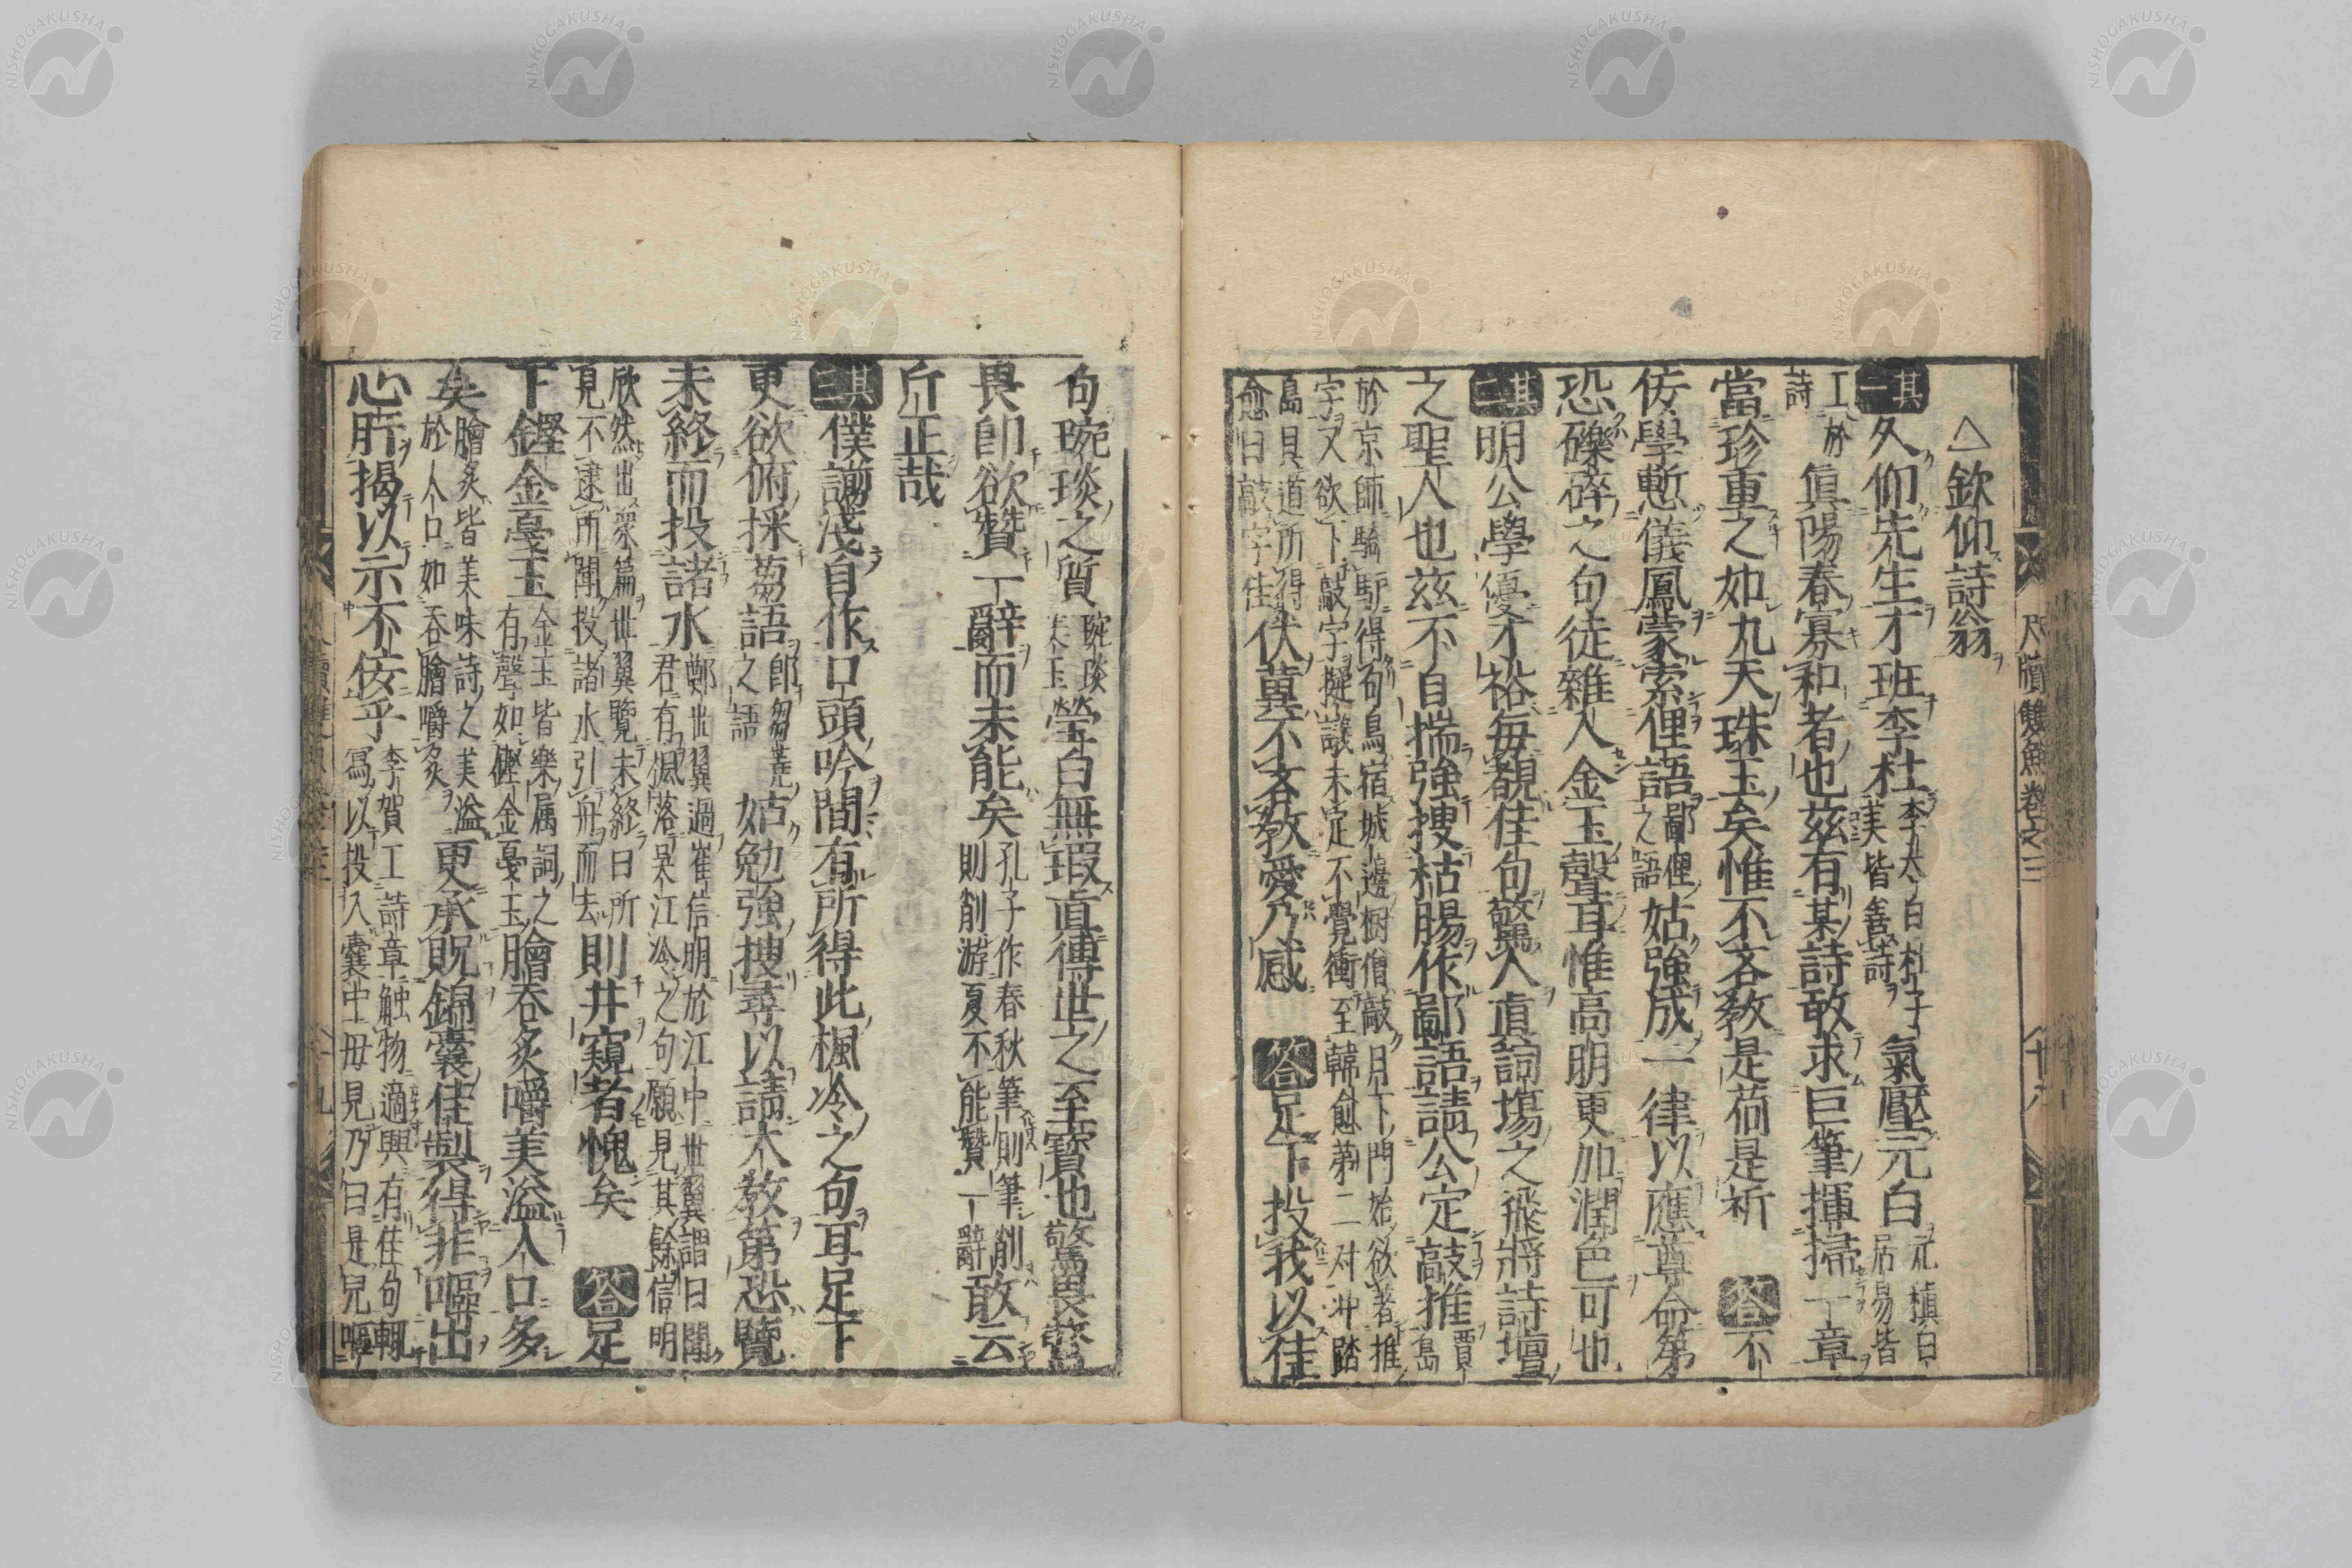 尺牘雙魚卷之三
十八
△欽仰詩翁
其一 久仰先生才班李杜李太白杜子美皆善詩氣壓元白元稹白居易皆
工於詩眞陽春寡和者也茲有某詩敢求巨筆揮掃一章
當珍重之如九天珠玉矣惟不吝教是荷是祈 答 不
佞學慙儀鳳蒙索俚語鄙俚之語姑強成一律以應尊命第
恐礫碎之句徒雜人金玉聲耳惟高明更加潤色可也
其二 明公學優才裕每覩佳句驚人眞詞場之飛將詩壇
之聖人也茲不自揣強搜枯腸作鄙語請公定敲推賈島
於京師騎馿得句鳥宿城邊樹僧敲月下門始欲着推
字又欲下敲字擬議未定不覺衝至韓愈第二対冲踏
島具道所得愈曰敲字佳伏冀不吝教愛乃感 答 足下投我以佳
句琬琰之質琬琰美玉瑩白無瑕直傳世之至寶也驚畏驚
畏卽欲贊一辭而未能矣孔子作春秋筆則筆削則削游夏不能贊一辭敢云
斤正哉
其三 僕謭淺自作口頭吟間有所得此楓冷之句耳足下
更欲俯採蒭語卽芻蕘之語姑勉強搜尋以請大教第恐覽
未終而投諸水鄭世翼過崔信明於江中世翼謂曰聞君有楓落吳江冷之句願見其餘信明
欣然出衆篇世翼覽未終曰所見不逮所聞投諸水引舟而去則井窺者愧矣 答 足
下鏗金戞玉金玉皆樂属詞之有聲如鏗金戞玉膾呑炙嚼美溢人口多
矣膾炙皆美味詩之美溢於人口如呑膾嚼炙更承貺錦囊佳製得非嘔出
心肝揭以示不佞乎李賀工詩章触物適興有佳句輒寫以投入囊中毋見乃曰是兒嘔